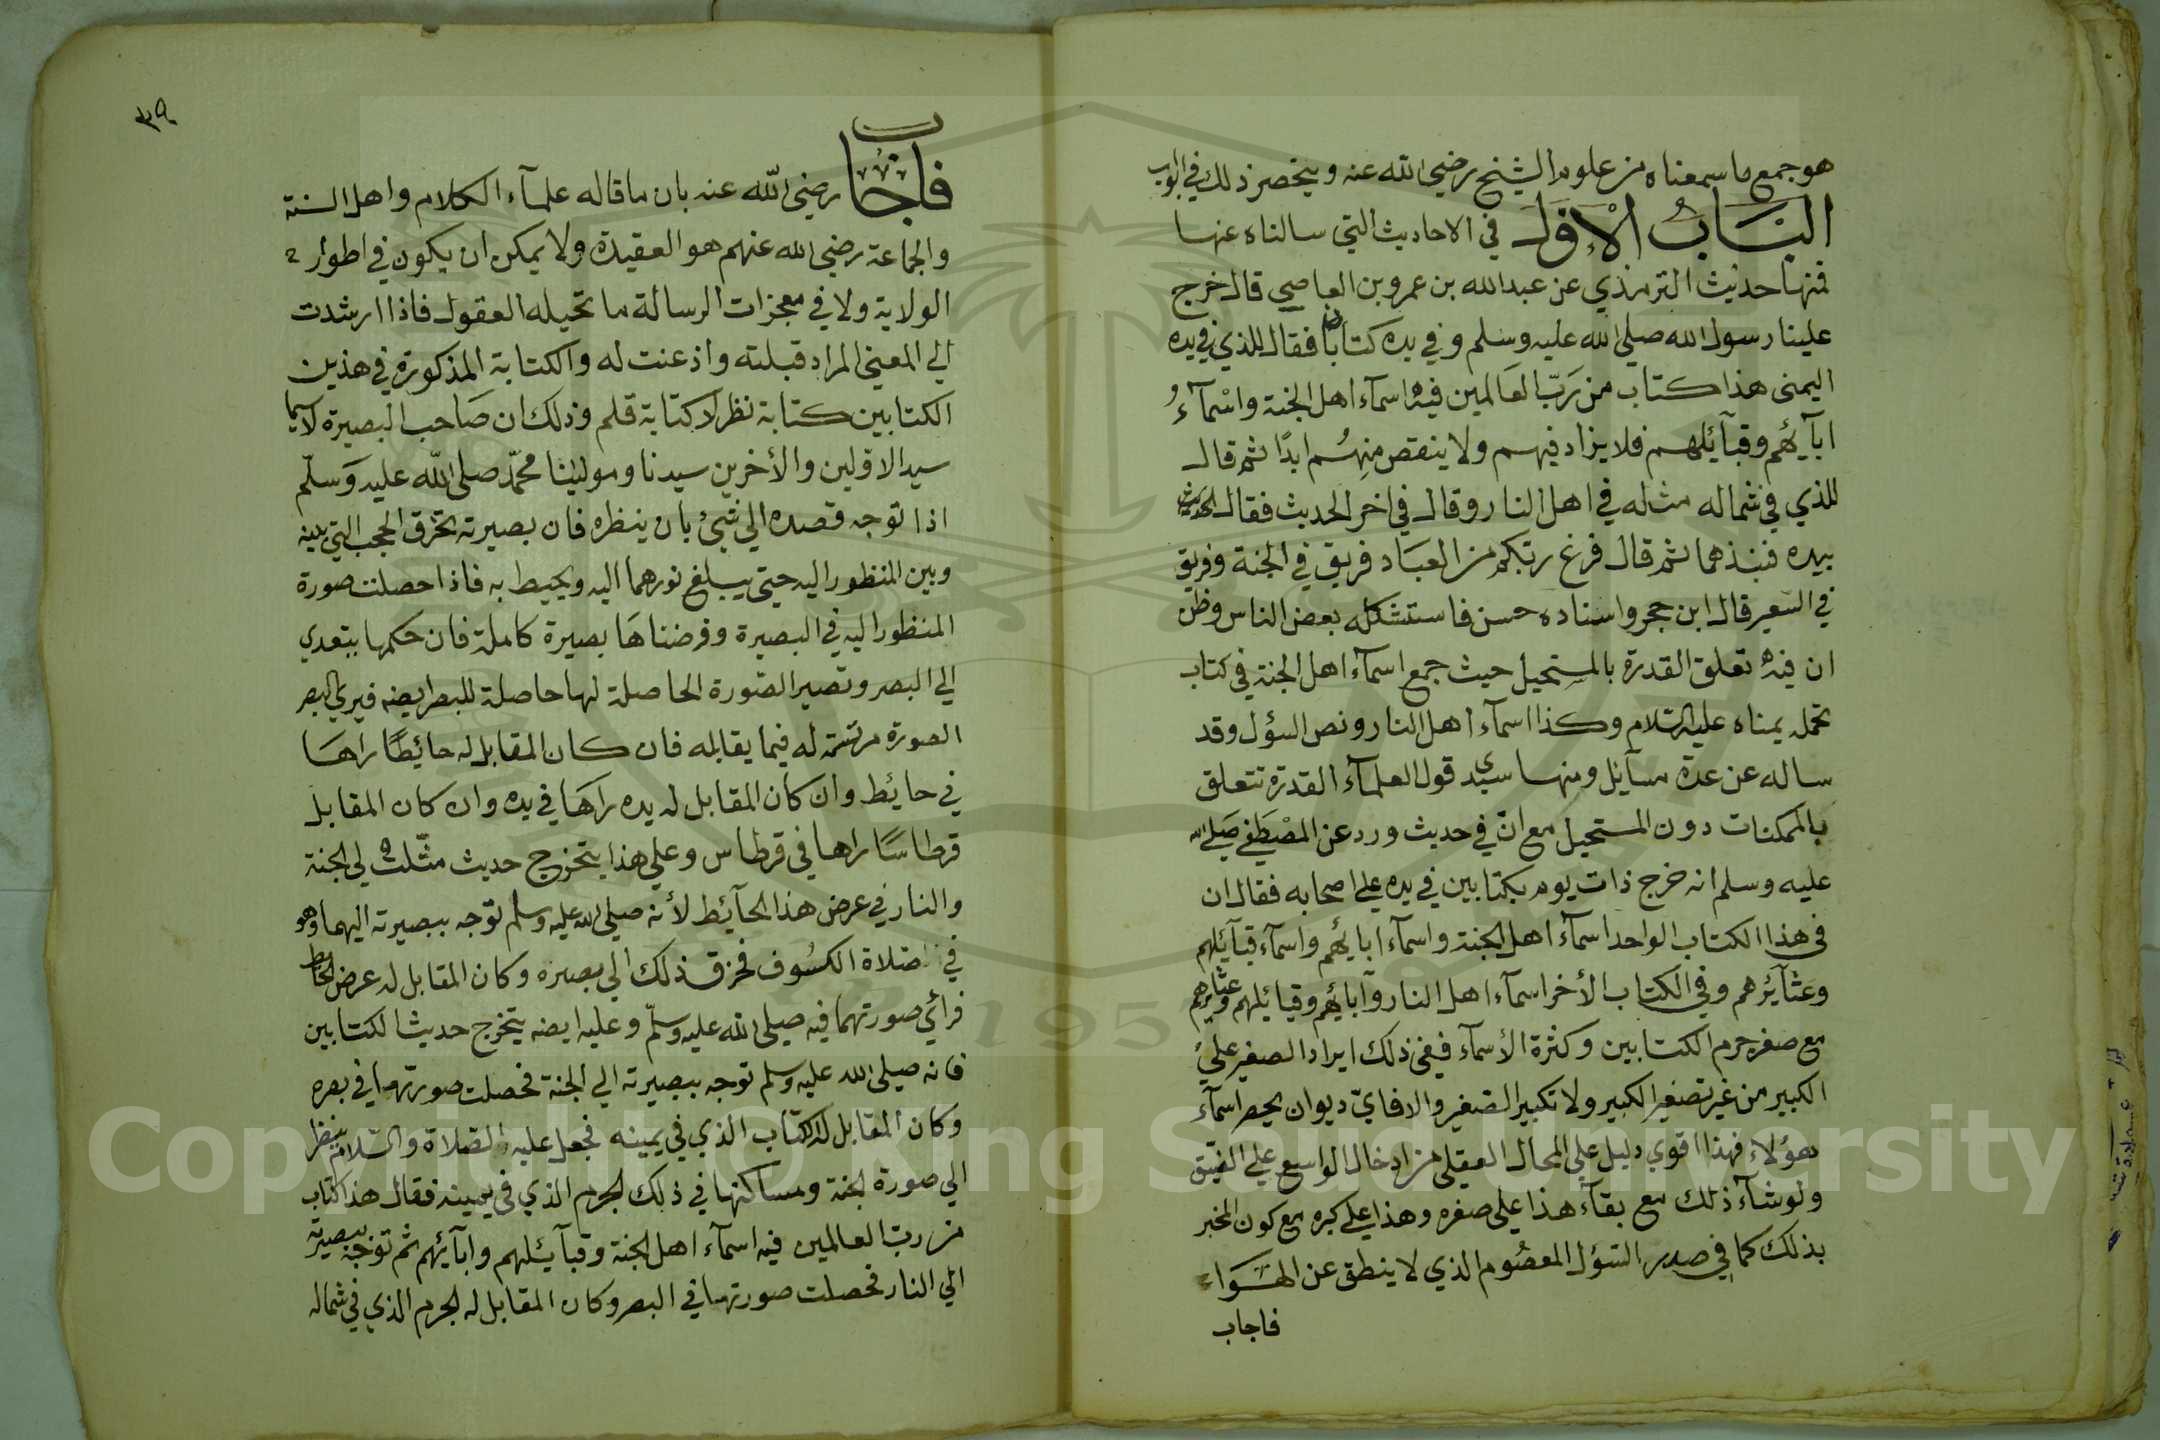 هو جمع ما سمعناه من علوم الشيخ رضي الله عنه وينحصر ذلك في ابواب
الباب الاول في الاحاديث التي سالناه عنها
فمنها حديث الترمذي عن عبدالله بن عمرو بن العاصي قال خرج
علينا رسول الله صلي الله عليه وسلم وفي يده كتابان فقال للذي في يده
اليمنى هذا كتاب من رَبّ العَالمين فيه اسمآء اهل الجنة واسْمآءُ
ابآئِهم وقبآئلهم فلا يزاد فيهم ولا ينقص منهُم ابدًا ثم قال
للذي في شماله مثله في اهل النار وقال في اخر الحديث فقال
بيده فنبذهما ثم قال فرغ ربكم من العبَاد فريق في الجنة وفريق
في السعير قال ابن حجر واسناده حسن فاستشكله بعض الناس وظن
ان فيه تعلق القدرة بالمستحيل حيث جمع اسمآء اهل الجنة في كتاب
تحمله يمناه عليه السلام وكذا اسمآء اهل النار ونص السؤل وقد
ساله عن عدة مسآئل ومنها سيدي قول العلمآء القدرة تتعلق
بالممكنات دون المستحيل مع انّ في حديث ورد عن المصْطَفي صَلي الله
عليه وسلم انه خرج ذات يوم بكتابين في يده علي اصحابه فقال ان
في هذا الكتاب الواحد اسمآء اهل الجنة واسمآء ابائهم واسمآء قبآئلهم
وعشآئرهم وفي الكتاب الأخر اسمآء اهل النار وآبائهم وقبائلهم وعشائرهم
مع صغر جرم الكتابين وكثرة الأسمآء ففي ذلك ايراد الصغير عليَ
الكبير من غير تصغير الكبير ولا تكبير الصغير والا فايّ ديوان يحصر اسمآء
هؤلاء فهذا اقوي دليل علي المحال العقلي من ادخال الواسع علي الضيق
ولو شآء ذلك مع بقآء هذا علي صغره وهذا علي كبره مع كون المخبر
بذلك كما في صدر السؤل المعصُوم الذي لا ينطق عن الهَوَاء
فاجاب
٣٩
فاجاب رضي الله عنه بان ما قاله علمآء الكلام واهل السنة
والجماعة رضي الله عنهم هو العقيدة ولا يمكن ان يكون في اطوار
الولاية ولا في معجزات الرسالة ما تحيله العقول فاذا ارشدت
الي المعني المراد قبلته واذعنت له والكتابة المذكورة في هذين
الكتابين كتابة نظر لا كتابة قلم وذلك ان صَاحب البصيرة لا سيما
سيد الاولين والأخرين سيدنا ومولينا محمّد صلى الله عليه وَسلّم
اذا توجه قصده الي شئ بان ينظره فان بصيرته تخرق الحجب التي بينه
وبين المنظور اليه حتي يبلغ نورهما اليه ويحيط به فاذا حصلت صورة
المنظور اليه في البصيرة وفرضناهَا بصيرة كاملة فان حكمها يتعدي
الي البصر وتصير الصورة الحاصلة لها حاصلة للبصر ايضه فيري البصر
الصورة مرتسمة له فيما يقابله فان كان المقابل له حائِطًا راهَا
في حائِط وان كان المقابل له يده راهَا في يده وان كان المقابل
قرطاسًا راها في قرطاس وعلي هذا يتخرج حديث مثّلت لي الجنة
والنار في عرض هذا الحآئِط لأنه صلي الله عليه وسلم توجه ببصيرته اليهما وهو
في صَلاة الكسُوف فخرق ذلك الي بصره وكان المقابل له عرض الحائط
فرأي صورتهما فيه صلي الله عليه وسلّم وعليه ايضه يتخرج حديث الكتابين
فانه صلي الله عليه وسلم توجه ببصيرته الي الجنة فحصلت صورتها في بصره
وكان المقابل له الكتاب الذي في يمينه فجعل عليه الصلاة والسّلام ينظر
الي صورة الجنة ومساكنها في ذلك الجرم الذي في يمينه فقال هذا كتاب
من رب العالمين فيه اسمآء اهل الجنة وقبآئلهم وابآئهم ثم توجه ببصيرته
الي النار فحصلت صورتها في البصر وكان المقابل له الجرم الذي في شماله
Copyright © King Saud University
195